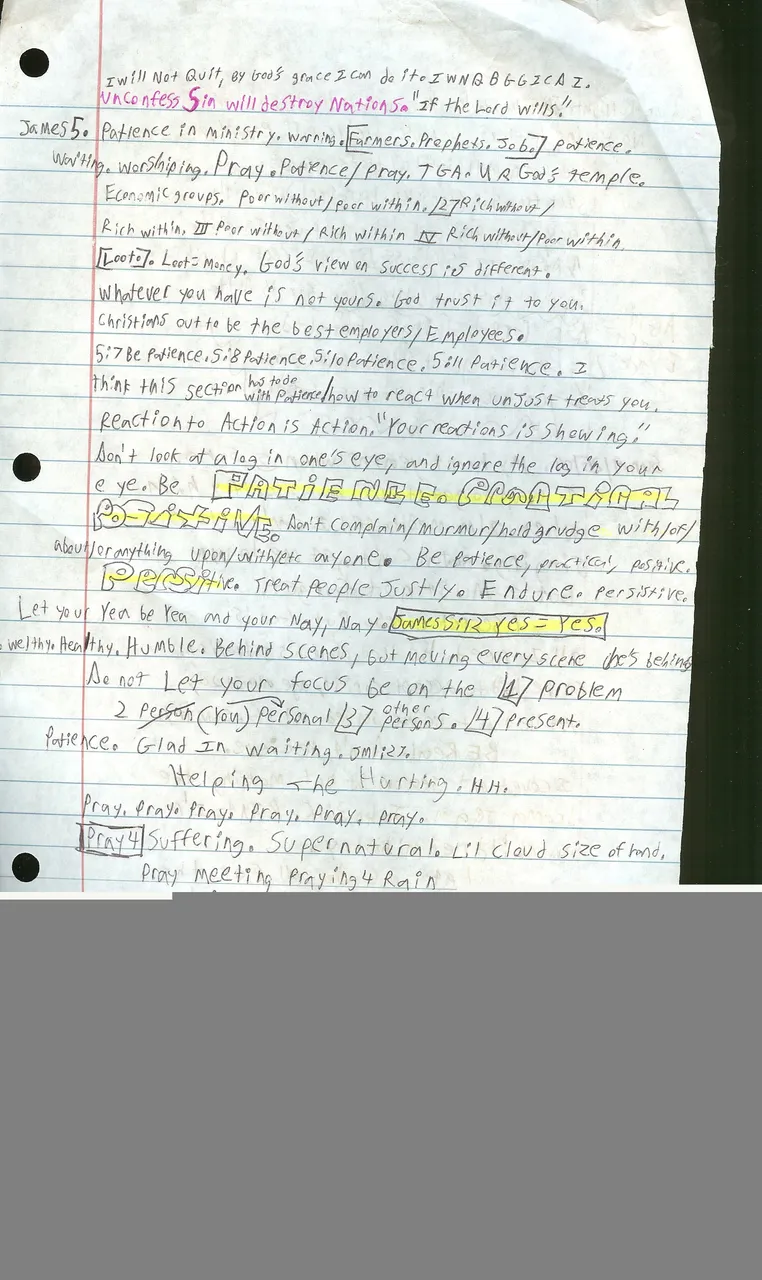 I will Not Quit, by God's grace I can do it. I W N Q B G G I C A I.
Unconfess Sin will destroy Nations. "If the Lord wills."
James 5. Patience in ministry. Warning. [Farmers. Prophets. Job.] patience.
Waiting. Worshiping. Pray. Patience/Pray. TGA. U R God's temple.
Economic groups. Poor without/poor within. /27 Rich without/
Rich within. III Poor without/Rich within IV Rich without/Poor within.
[Loot.]. Loot=Money. God's view on success is different.
Whatever you have is not yours. God trust it to you.
Christians out to be the best employers/Employees.
5:7 Be Patience, 5:8 Patience, 5:10 Patience, 5:11 Patience. I
think this section has to do with Patience/how to react when unjust treats you.
Reaction to Action is Action. "Your reactions is showing."
Don't look at a log in one's eye, and ignore the log in your
eye. Be PATIENCE. PRACTICAL
POSITIVE. Don't complain/murmur/hold grudge with/of/
about/or anything upon/with/etc anyone. Be patience, practical, positive.
PERSitive. Treat people Justly. Endure. Persistive.
Let your Yea be Yea and your Nay, Nay. James 5:12 yes = yes.
Welthy. Healthy. Humble. Behind scenes, but moving every scene he's behind
Do not Let your focus be on the [1] Problem
2 Person (You) Personal [3] other persons. [4] Present.
Patience. Glad In waiting. JM1:27.
Helping The Hurting. HH.
Pray. Pray. Pray. Pray. Pray. Pray.
Pray 4 Suffering. Supernatural. Lil cloud size of hand.
Pray meeting Praying 4 Rain